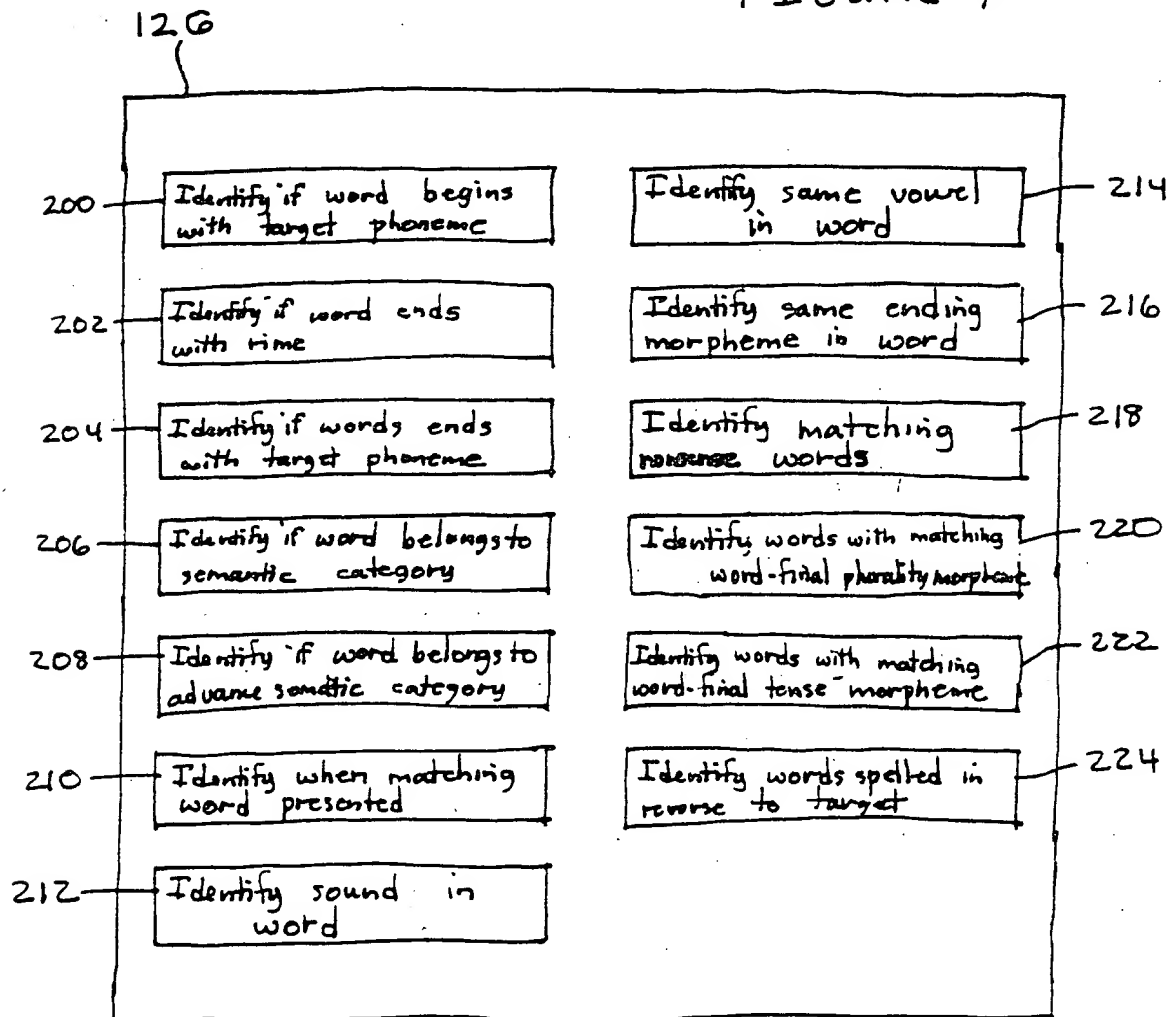 126
200
Identify if word begins
with target phoneme
202
Identify if word ends
with rime
204
Identify if words ends
with target phoneme
206
Identify if word belongs to
semantic category
208
Identify if word belongs to
advance somatic category
210
Identify when matching
word presented
212
Identify sound in
word
Identify same vowel
in word
214
Identify same ending
morpheme in word
216
Identify matching
nonsense words
218
Identify words with matching
word-final plurality morpheme
220
Identify words with matching
word-final tense morpheme
222
Identify words spelled in
reverse to target
224